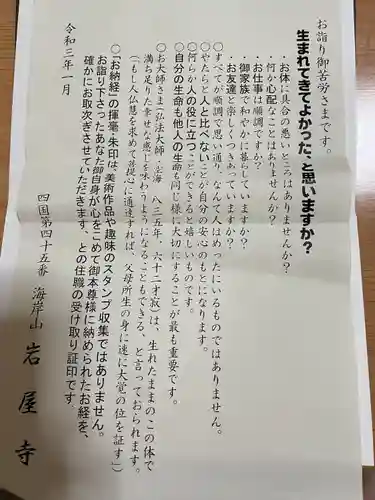 お詣り御苦労さまです。
生まれてきてよかった、と思いますか?
・お体に具合の悪いところはありませんか?
・何か心配なことはありませんか?
・お仕事は順調ですか?
・御家族で和やかに暮らしていますか?
・お友達と楽しくつきあっていますか?
○すべてが順調で思い通り、なんて人はめったにいるものではありません。
○やたらと人と比べないことが自分の安心のもとになります。
○何らか人の役に立つことができると嬉しいものです。
○自分の生命も他人の生命も同じ様に大切にすることが最も重要です。
○お大師さま(弘法大師・空海 八三五年、六十二才寂)は、生れたままのこの体で
満ち足りた幸せな感じを味わうようになることもできる、と言っておられます。
(もし人仏慧を求めて菩提心に通達すれば、父母所生の身に速に大覚の位を証す)
○「お納経」の揮毫・朱印は、美術作品や趣味のスタンプ収集ではありません。
お詣り下さったあなた御自身が心をこめて御本尊様に納められたお経を、
確かにお取次ぎさせていただきます、との住職の受け取り証印です。
令和三年一月
四国第四十五番 海岸山 岩屋寺